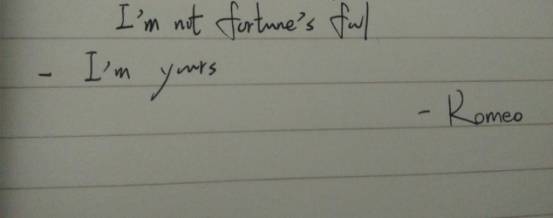 I'm not fortune's fool
- I'm yours
- Romeo